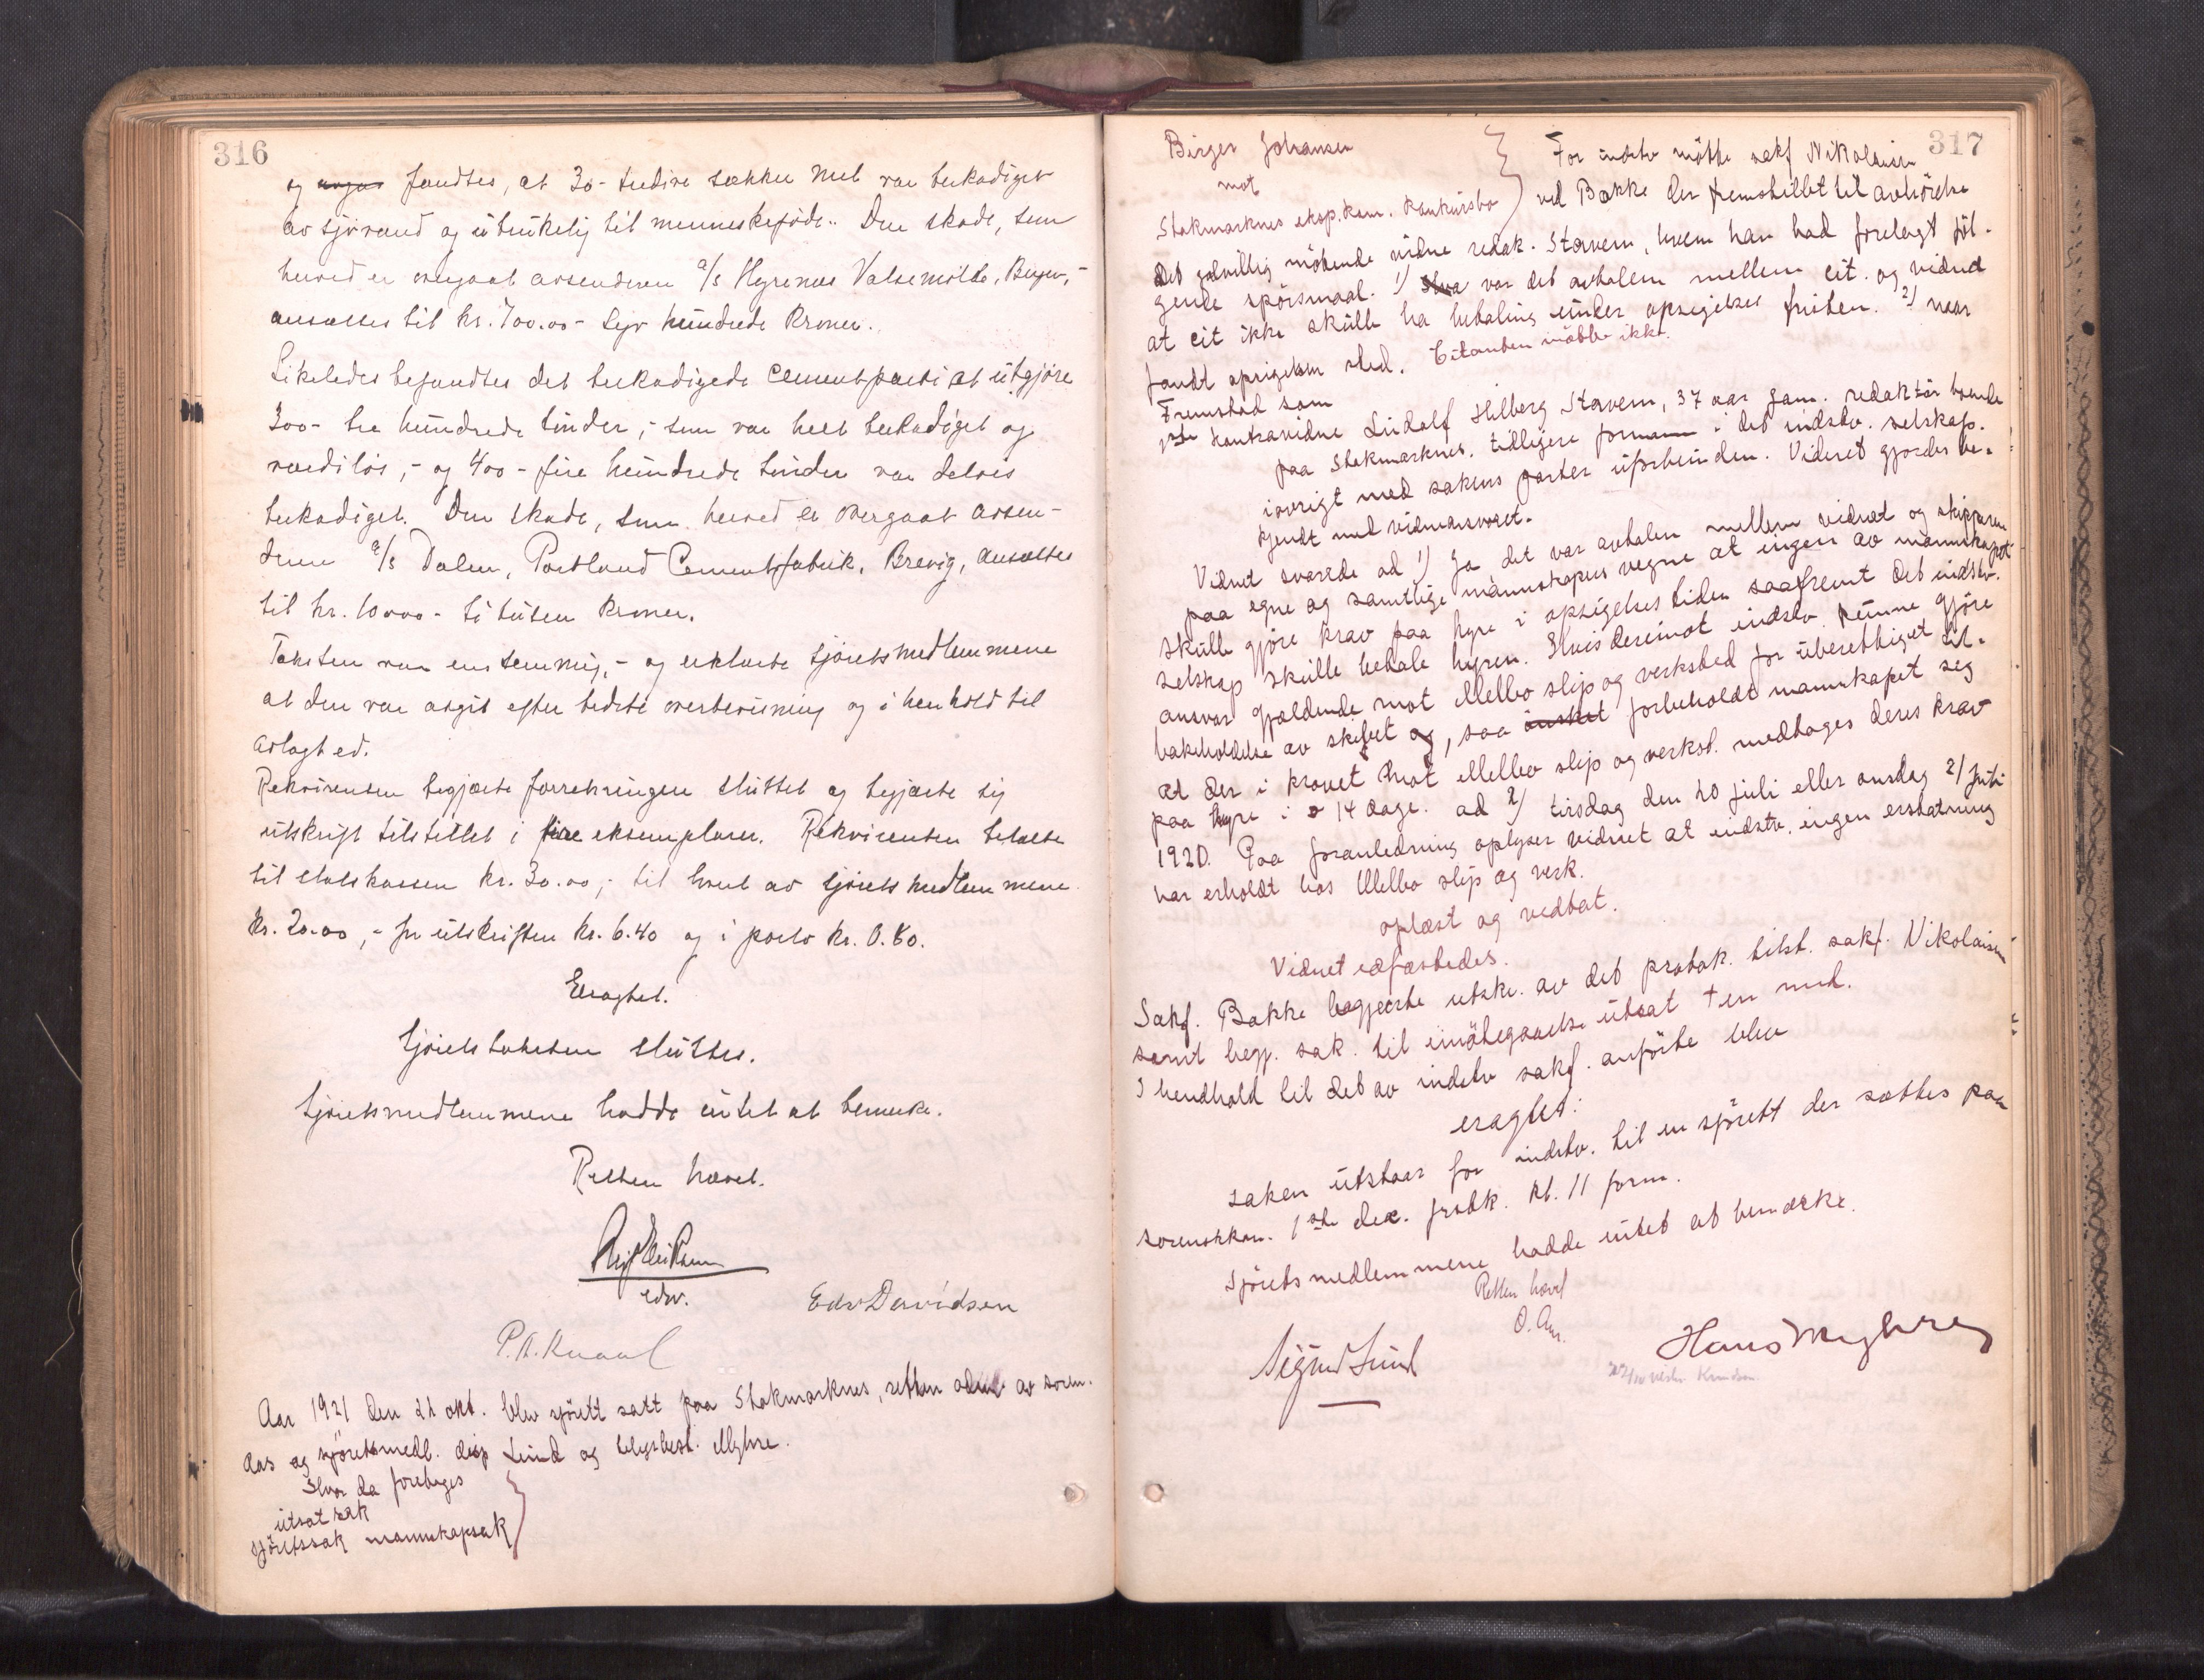 316
og fandtes, at 30 - tredive sække mel var beskadiget
av sjövand og ubrukelig til menneskeföde. Den skade, som
herved er overgaat avsenderen a/s Hegrenæs Valsemölle, Bergen,-
ansættes til kr. 700.00 - syv hundrede kroner.
Likeledes befandtes det beskadigede cementparti at utgjöre
300 - tre hundrede tönder, - som var helt beskadiget og
værdilös, - og 400 - fire hundrede tönder var delvis
beskadiget. Den skade, som herved er overgaat avsen-
deren a/s Dalen, Portland Cementfabrik, Brevig, ansættes
til kr. 10000 - ti tusen kroner.
Taksten var enstemmig, - og erklærte sjöretsmedlemmene
at den var avgit efter bedste overbevisning og i henhold til
avlagt ed.
Rekvirenten begjærte forretningen sluttet og begjærte sig
utskrift tilstillet i fire eksemplarer. Rekvirenten betalte
til statskassen kr. 30.00, - til hvert av sjöretsmedlemmene
kr. 20.00, - for utskriften kr. 6.40 og i porto kr. 0.80.
Eragtet.
Sjöretstaksten sluttes.
Sjöretsmedlemmene hadde intet at bemerke.
Retten hævet.
edsv.
Edv Davidsen
P. A. Knaal
Aar 1921 den 22 okt. blev sjörett satt paa Stokmarknes, retten adm. av soren.
Aas og sjöretsmedl. disp Lund og telegrbest. Myhre.
Hvor da foretoges
utsat sak
sjöretssak mannskapsak
317
Birger Johansen
mot
Stokmarknes eksp. kom. konkursbo
For indstv mötte sakf Nikolaisen
ved Bakke der fremstillet til avhörelse
det godvillig mötende vidne redak. Stavem, hvem han had forelagt föl-
gende spörsmaal. 1) var det avtalen mellem cit. og vidnet
at cit ikke skulle ha betaling under opsigelses fristen. 2) naar
fandt opsigelsen sted. Citanten mötte ikke.
Fremstod som
1ste kontravidne Ludolf Hilberg Stavem, 37 aar gam. redaktör boende
paa Stokmarknes. tidligere formann i det indstv. selskap.
iövrigt med sakens parter uforbunden. Vidnet gjordes be-
kjendt med vidneansvaret.
Vidnet svarede ad 1) Ja det var avtalen mellem vidnet og skipperen
paa egne og samtlige mannskapers vegne at ingen av mannskapet
skulle gjöre krav paa hyre i opsigelsestiden saafremt det indstv.
selskap skulle betale hyren. Hvis derimot indstv. kunne gjöre
ansvar gjældende mot Melbo slip og verksted for uberettiget til-
bakeholdelse av skibet og, saa önsket forbeholdt mannskapet seg
at der i kravet mot Melbo slip og verkst. medtages deres krav
paa hyre i 14 dage. ad 2) tirsdag den 20 juli eller onsdag 21 juli
1920. Paa foranledning oplyser vidnet at indstv. ingen erstatning
har erholdt hos Melbo slip og verk.
oplæst og vedtat.
Vidnet edfæstedes.
Sakf. Bakke begjærte utskr. av det protok. tilst. sakf. Nikolaisen
samt begj. sak. til imötegaaelse utsat en mnd.
I hendhold til det av indstv sakf. anförte blev
eragtet:
saken utstaar for indstv. til en sjörett der sættes paa
sorenskkon. 1ste dec. förstk. kl. 11 form.
Sjöretsmedlemmene hadde intet at bemærke.
Retten hævet
O. Aas.
Sigurd Lund
Hans Myhre